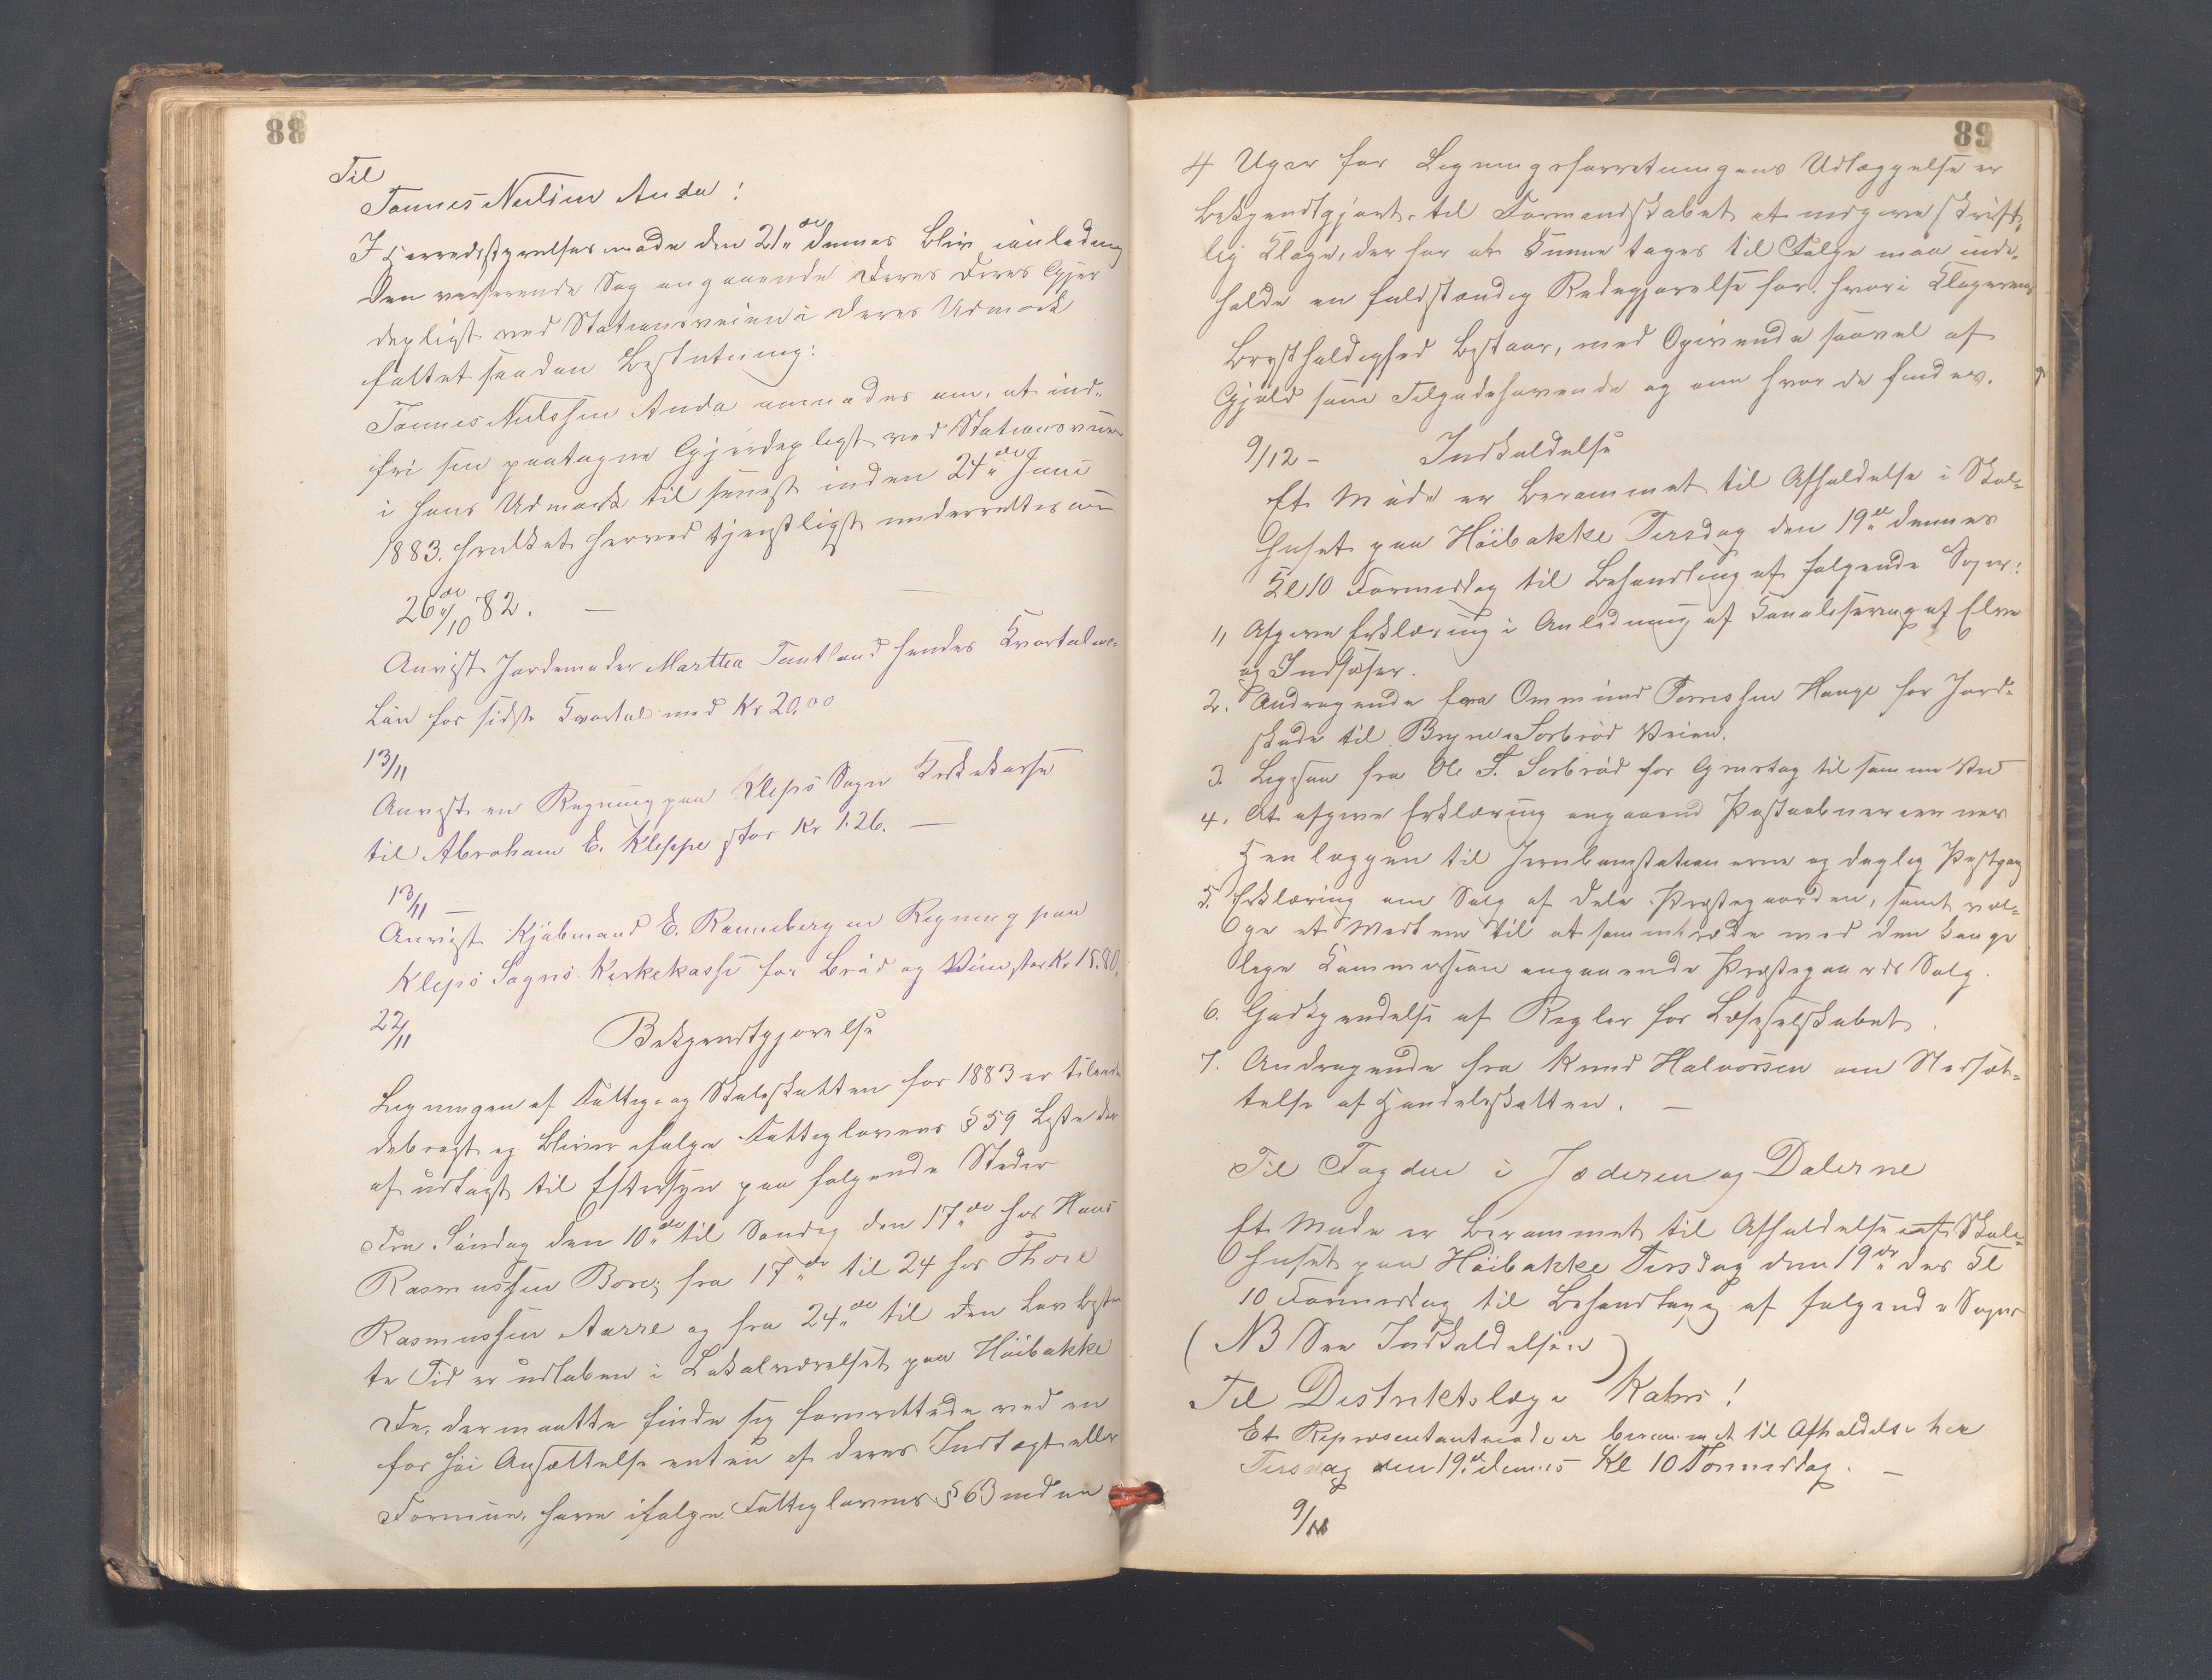 88
Til
Tønnes Nielsen Anda!
I Herredsstyrelsesmøde den 21de dennes blev i anledning
den verserende Sag angaaende deres deres Gjer
depligt ved Stationsveien i deres Udmark
fattet saadan Beslutning:
Tønnes Nielssen Anda anmodes om, at ind-
fri sin paatagne Gjerdepligt ved Stationsveien
i hans Udmark til senest inden 24de Juni
1883. hvilket herved tjenstligst underrettes om
26de/10 82. —
Anvist Jordemoder Marthea Tautland hendes Kvartal
Løn for sidste Kvartal med Kr 20,00
13/11
Anvist en Regning paa Kleps Sogns Kirkekasse
til Abraham E. Kleppe stor Kr 1.26. —
13/11 —
Anvist Kjøbmand E. Ranneberg en Regning paa
Kleps Sogns Kirkekasse for Brød og Viin stor Kr 15.80.
22/11
Bekjendtgjørelse
Ligningen af Fattig- og Skoleskatten for 1883 er tilende
debragt og bliver ifølge Fattiglovens § 59 Liste der
af udlagt til Eftersyn paa følgende Steder
Fra Søndag den 10de til Søndag den 17de hos Hans
Rasmussen Bore; fra 17de til 24 hos Thore
Rasmussen Aarre og fra 24de til den lovbestem
te Tid er udløben i Lokalværelset paa Høibakke
De, der maatte finde sig forurettede ved en
for høi Ansættelse enten af deres Indtægt eller
Formue, have ifølge Fattiglovens § 63 inden
89
4 Uger før Ligningsforretningens Udlæggelse er
bekjendtgjort, til Formandskabet at indgive skrift-
lig Klage, der for at kunne tages til Følge maa inde-
holde en fuldstændig Redegjørelse for, hvori Klagerens
Brøstholdighed bestaar, med Opgivende saavel af
Gjæld som Tilgodehavende og om hvor de findes.
9/12 — Indkaldelse
Et Møde er berammet til Afholdelse i Skole-
huset paa Høibakke Tirsdag den 19de dennes
Kl 10 Formiddag til Behandling af følgende Sager:
1, Afgive Erklæring i Anledning af Kanalisering af Elve
og Indsøer.
2. Andragende fra Ommund Tørressen Hauge for Jord-
skade til Bryne-Serbrød Veien.
3. Ligesaa fra Ole T. Serbrød for Grustag til samme Vei
4. At afgive Erklæring angaaend Postaabneriernes
Henlæggen til Jernbanestationerne og daglig Postgang
5. Erklæring om Salg af dele Præstegaarden, samt væl-
ge et Medlem til at sammentræde med den konge
lige Kommission angaaende Præstegaards Salg.
6. Godkjendelse af Regler for Læseselskabet.
7. Andragende fra Knud Halvorsen om Nedsæt-
telse af Handelsskatten. —
Til Fogden i Jæderen og Dalerne
Et Møde er berammet til Afholdelse Skole-
huset paa Høibakke Tirsdag den 19de ds Kl
10 Formiddag til Behandling af følgende Sager
(NB See Indkaldelsen)
Til Distriktslæge Kahrs!
Et Repræsentantmøde er berammet til Afholdelse her
Tirsdag den 19de dennes Kl 10 Formiddag. —
9/12